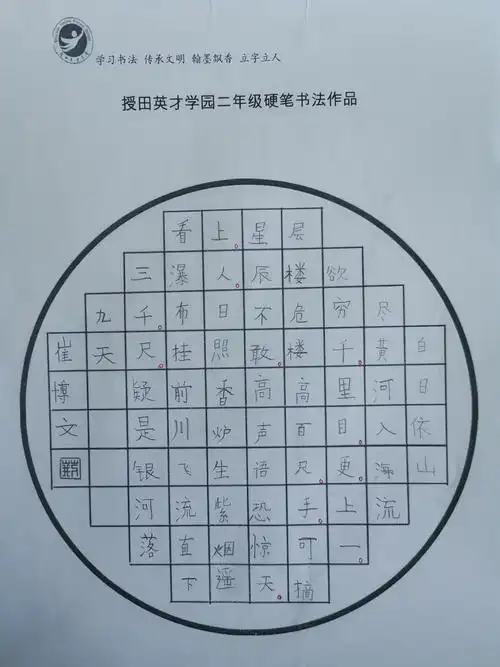 学习书法 传承文明 翰墨飘香 立字立人
授田英才学园二年级硬笔书法作品
白日依山
尽黄河入海流
欲穷千里目更上一
层楼危楼高百尺手可摘
星辰不敢高声语恐惊天
上人日照香炉生紫烟遥
看瀑布挂前川飞流直下
三千尺疑是银河落
九天
崔惇文